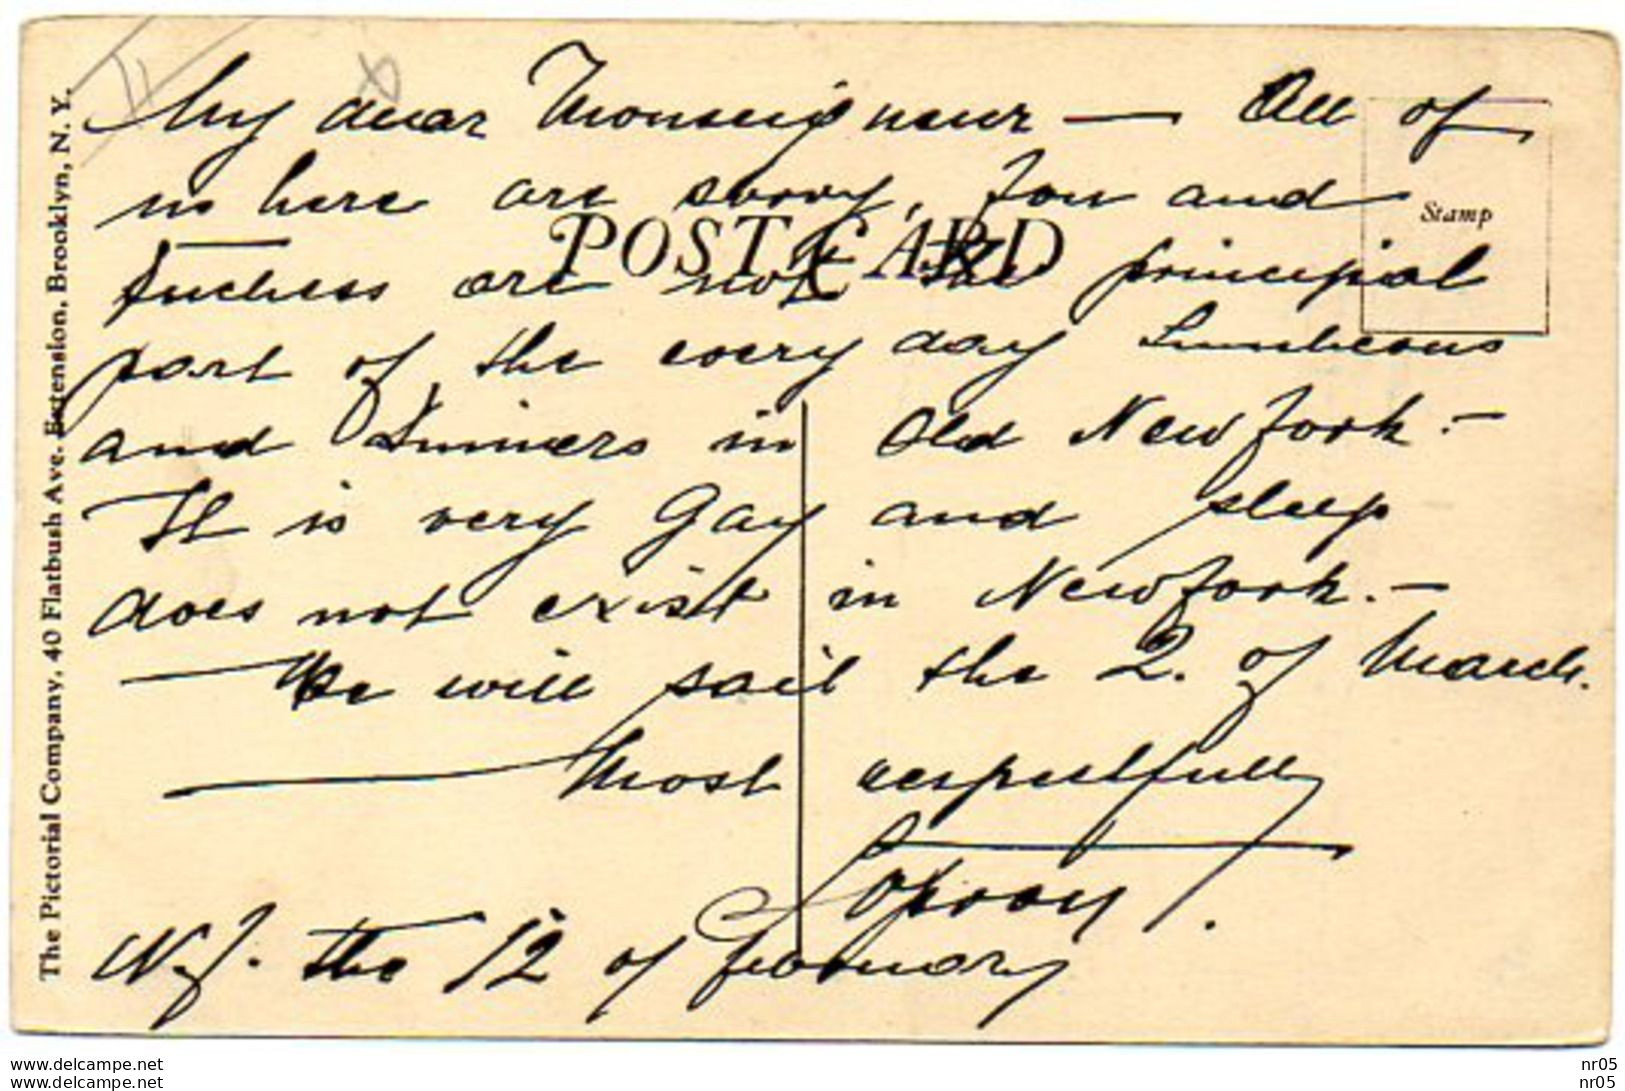 My dear Monseigneur — All of
us here are sorry, You and
Duchess are not the principal
part of the every day Luncheons
and Dinners in Old New York. —
It is very Gay and sleep
does not exist in New York. —
— We will sail the 2. of March.
— Most respectfully
N.Y. the 12 of February
POST CARD
Stamp
The Pictorial Company, 40 Flatbush Ave. Extension, Brooklyn, N. Y.
delcampe.net
delcampe.net
nr05
nr05